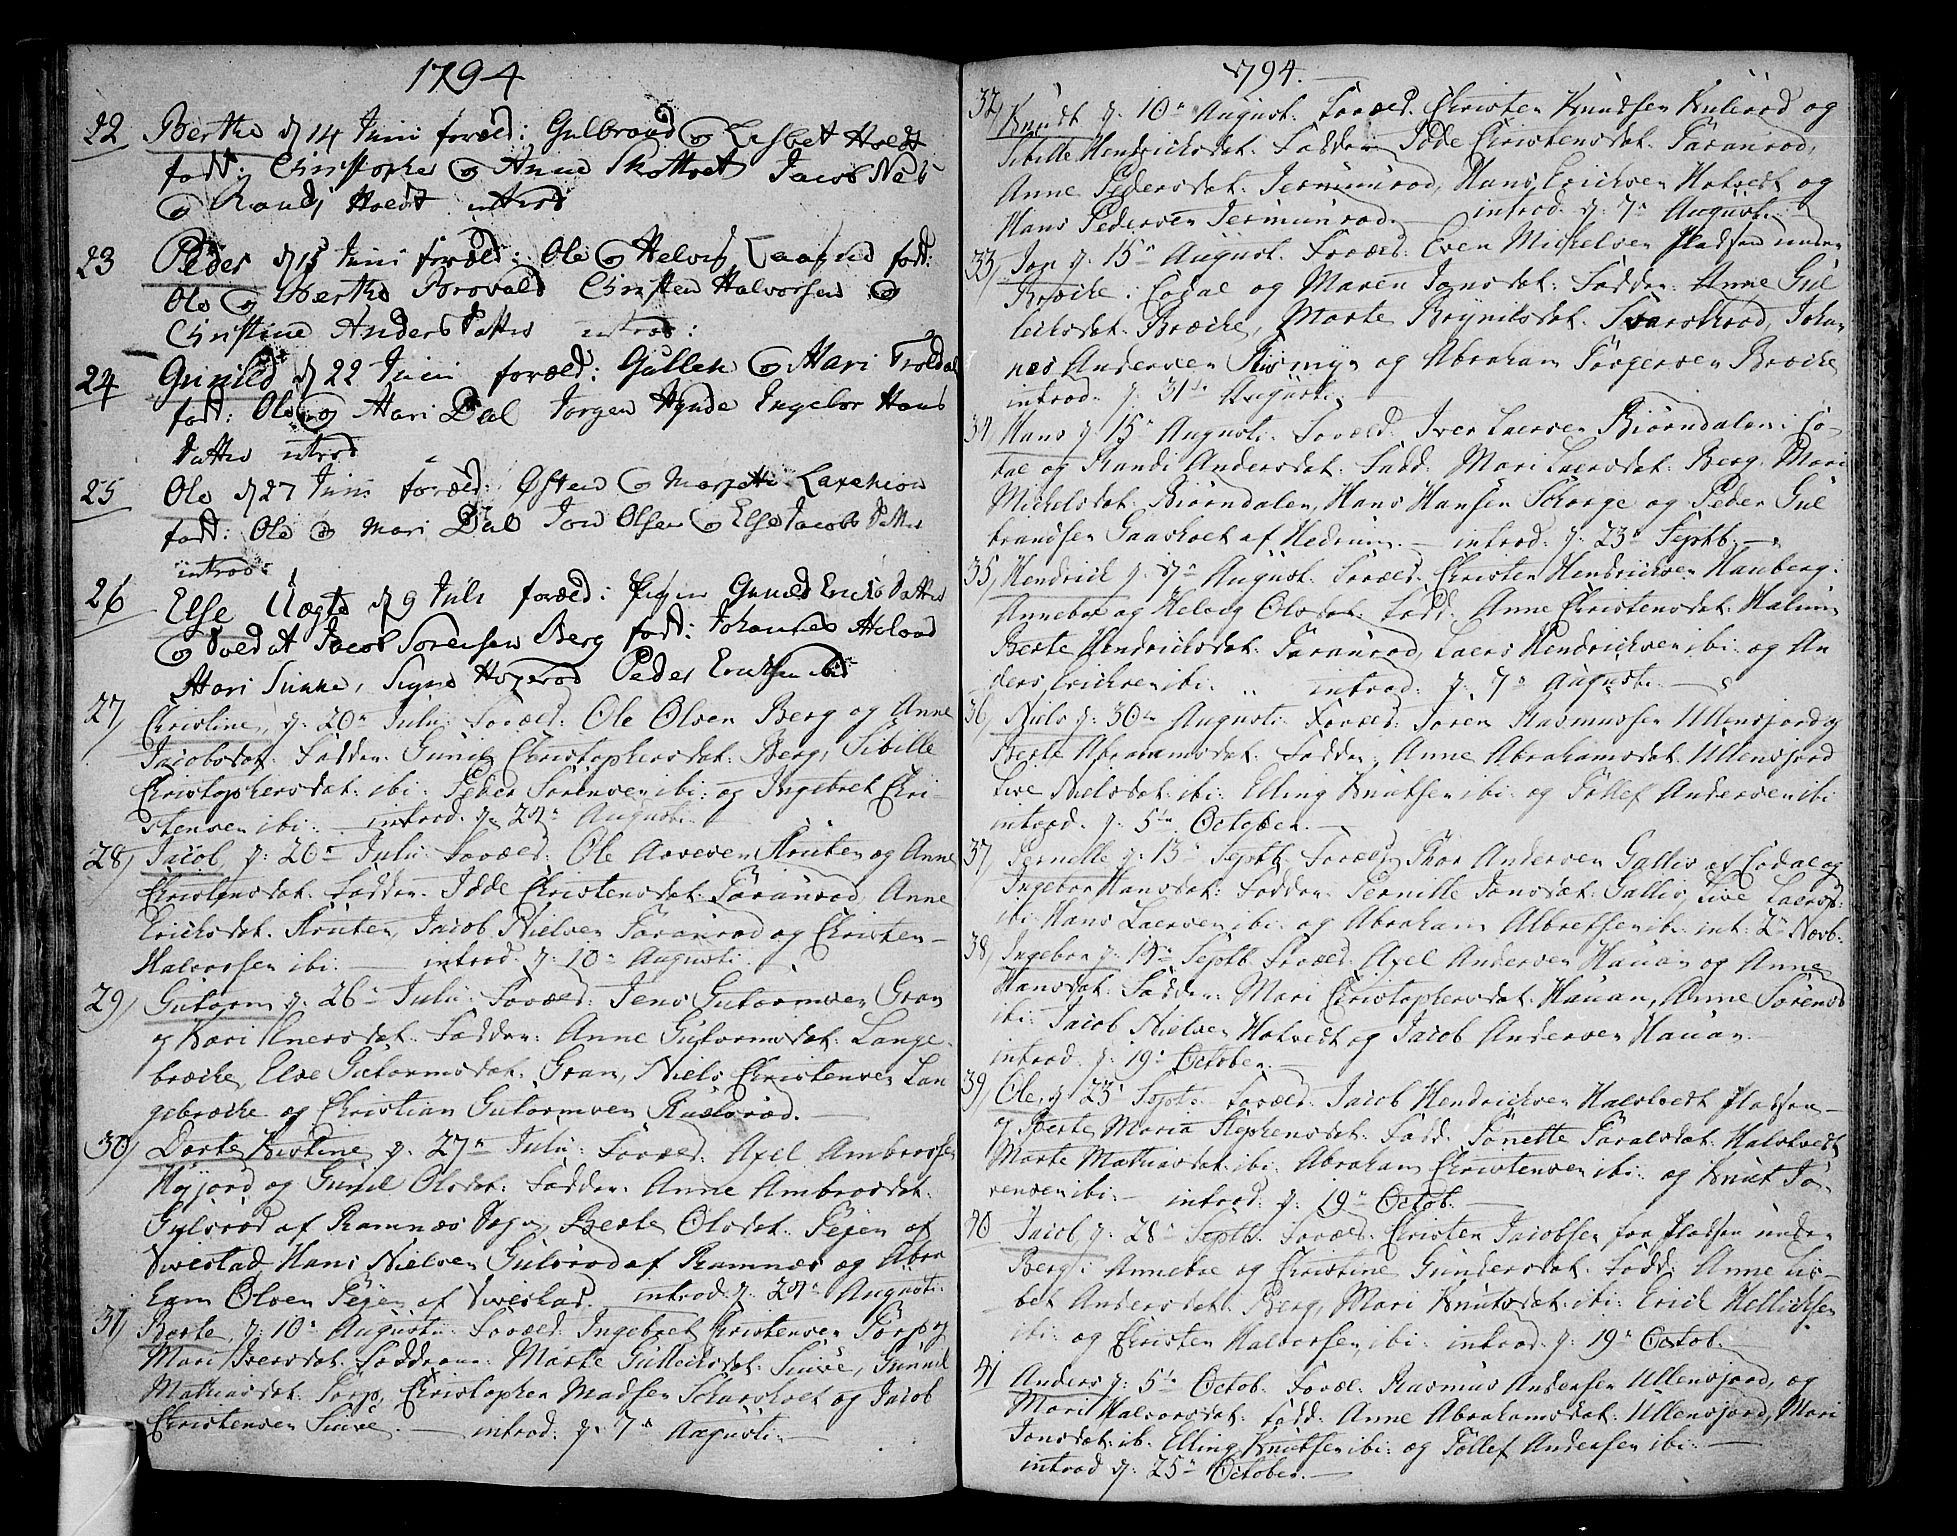 1794
22 Berthe d 14 Juni foræld: Gulbrand og Lisbet Holdt
fadd: Christopher og Anne Skottvet Jacob Neb
og Randj Holdt introd
23 Peder d 15 Juni foræld: Ole og Helvig fadd:
Ole og Berthe Torsvald Christen Halvorsen og
Christine Anders Datter introd:
24 Gunild d 22 Juni foræld: Gullek og Mari Troldal
fadd: Ole og Mari Dal Jørgen Hynde Engebor Hans
Datter introd
25 Ole d 27 Juni foræld: Østen og Margrethe
fadd: Ole og Mari Dal Jon Olsen og Else Jacobs Datter
introd:
26 Else Uægte d 9 Juli foræld: Pigen Gunild Erichs Datter
og Soldat Jacob Sørensen Berg fadd: Johannes
Mari Sukke, Signe Peder Ericksen ibid
27) Christine, d. 20de Juli. Foræld: Ole Olsen Berg og Anne
Jacobsdat. Faddere: Gunild Christophersdat. Berg, Sibille
Christophersdat: ibi. Peder Sørensen ibi: og Ingebret Chri-
stensen ibi. introd. d. 24de Augusti.
28) Jacob, d. 26de Juli. Foræld: Ole Arvesen Skruten og Anne
Christensdat. Faddere. Idde Christensdat. Faranrød, Anne
Ericksdat. Skruten, Jacob Nielsen Faranrød og Christen
Halvorsen ibi. introd. d. 10de Augusti.
29) Gutorm d. 26de Juli. Foræld: Jens Gutormsen Gran
og Kari Enersdat. Faddere: Anne Gutormsdat. Lange-
bræcke, Else Gutormsdat. Gran, Niels Christensen Lan
gebræcke og Christian Gutormsen
30) Dorte Kirstine d. 27de Juli. Foræld. Axel Ambrossen
Høyjord og Gunil Olsdat. Faddere: Anne Ambrosdat.
Gulsrød af Ramnæs Sogn, Berte Olsdat. Fejen af
Sivestad, Hans Nielsen Gulsrød af Ramnæs og Abra
ham Olsen Fejen af Sivestad. introd. d. 24de Augusti.
31) Berte, d. 10de Augusti. Foræld. Ingebret Christensen Torp og
Mari Iversdat. Faddere: Marte Gulleiksdat. Suve, Gunnil
Mathiasdat. Torp, Christopher Madsen Skarsholt og Jacob
Christensen Suve. introd. d. 7de Augusti.
1794.
32) Knudt d. 10de August. Foræld. Christen Knudsen Kulerød og
Sibille Hendricksdat. Faddere Idde Christensdat. Faranrød,
Anne Pedersdat. Jermunrød, Hans Ericksen Hotvedt og
Hans Pedersen Jermunrød. introd. d. 7de August.
33) Jon d. 15de August. Foræld. Even Mickelsen Pladsen under
Bræcke i Codal og Maren Jonsdat. Faddere. Anne Gul
leiksdat. Bræcke, Marte Brynilsdat. Svarsrød, Johan
nes Andersen og Abraham Torgersen Bræcke
introd. d. 31te Augusti.
34 Hans d. 15de Augusti. Foræld. Iver Larsen Biørndalen i Co-
dal og Randi Andersdat. Fadd: Mari Larsdat. Berg. Mari
Mickelsdat. Biørndalen, Hans Hansen Skorge og Peder Gul
brandsen Gaasholt af Hedrum. introd. d. 23de Septb.
35) Hendrick d. 17de August. Foræld. Christen Hendricksen Hauberg
Anneboe og Helvig Olsdat. Fadd. Anne Christensdat. Halum
Berte Hendricksdat. Faranrød, Laers Hendricksen ibi. og An
ders Ericksen ibi. introd. d. 7de Augusti.
36) Niels d. 30te Augusti. Foræld. Søren Rasmussen Ullensjord og
Berte Abrahamsdat. Faddere. Anne Abrahamsdat. Ullensjord
Live Nielsdat. ibi. Elling Knutsen ibi. og Tollef Andersen ibi
introd. d. 5te October.
37) Pernelle d. 13de Septb. Foræld Thor Andersen Gallis av Codal og
Ingebor Hansdat. Faddere. Pernille Jonsdat. Gallis, Live Laersd:
ibi. Hans Laersen ibi. og Abraham Albretsen ibi. int. 2de Novb.
38) Ingebor d. 19de Septb. Foræld. Axel Andersen Hauan og Anne
Hansdat. Faddere. Mari Christophersdat. Hauan, Anne Sørensd
ibi. Jacob Nielsen Hotvedt og Jacob Andersen Hauan.
introd. d. 19de October.
39) Ole d. 23de Septb. Foræld. Jacob Hendricksen Halvedt Pladsen
og Berte Maria Stephensdat. Fadd. Tonette Taralsdat. Halvedt
Marte Mathiasdat. ibi. Abraham Christensen ibi. og Knut Tø-
rensen ibi. introd. d. 19de Octob.
40 Jacob d. 28de Septb. Foræld. Christen Jacobsen fra Pladsen under
Berg i Anneboe og Christine Gundersdat. Fadd: Anne Lis-
bet Andersdat. Berg, Mari Knutsdat. ibi. Erick Hellicksen
ibi. og Christen Halvorsen ibi. introd. d. 19de Octob.
41 Anders d. 5te Octob. Foræl. Rasmus Andersen Ullensjord, og
Mari Halvorsdat. Fadd. Anne Abrahamsdat. Ullensjord, Mari
Jonsdat. ib. Elling Knutsen ibi. og Tollef Andersen ibi.
introd d. 25de October.